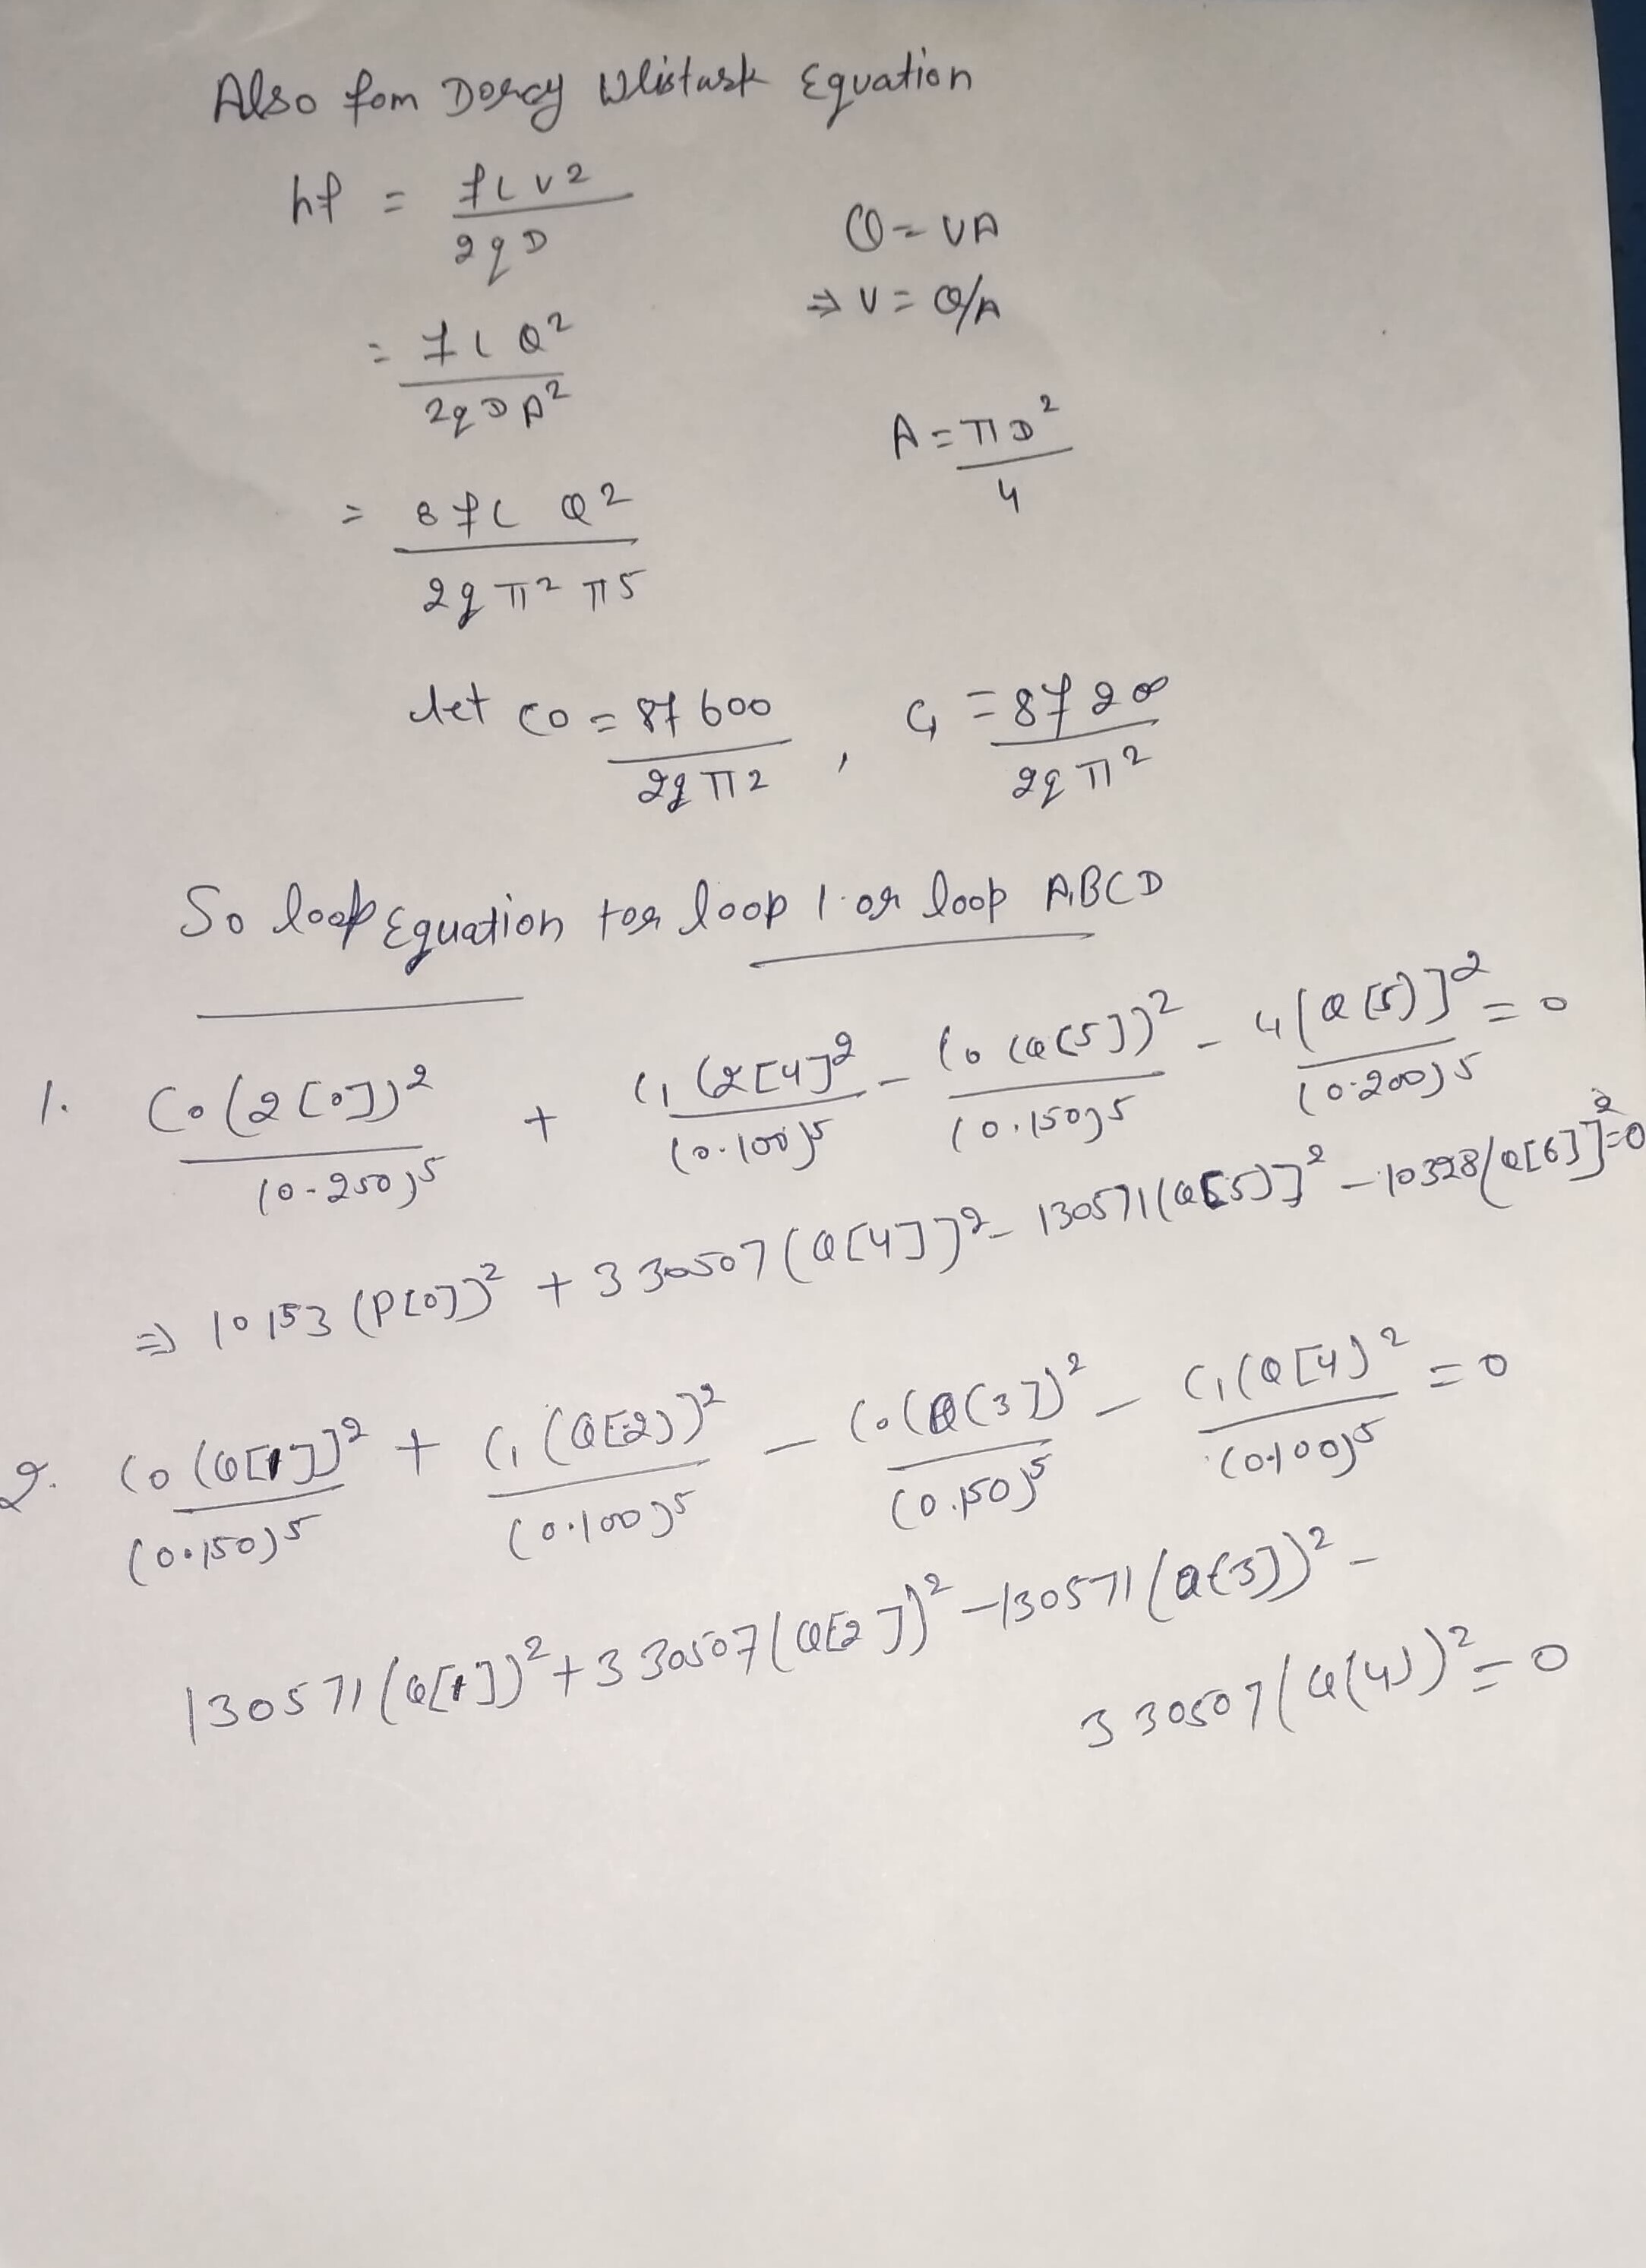 Also fom Dorcy Wlistask Equation
hf = fLV2 / 2gD
Q = VA
⇒ V = Q/A
= fLQ² / 2gDA²
A = πD² / 4
= 8fL Q² / 2gπ² π5
let C0 = 8f600 / 2gπ2 , C1 = 8f200 / 2gπ²
So loop Equation for loop 1 or loop ABCD
1. C0(2[0])² / (0.250)5 + C1(2[4]² / (0.100)5 - C0(Q[5])² / (0.150)5 - 4(Q(5)]² / (0.200)5 = 0
⇒ 10153 (P[0])² + 330507 (Q[4])² - 130571(Q[5)]² - 10328(Q[6])² = 0
2. C0(Q[1])² / (0.150)5 + C1(Q[2))² / (0.100)5 - C0(Q(3])² / (0.150)5 - C1(Q[4)² / (0.100)5 = 0
130571(Q[1])² + 330507(Q[2])² - 130571(Q(3])² -
330507(Q(4))² = 0